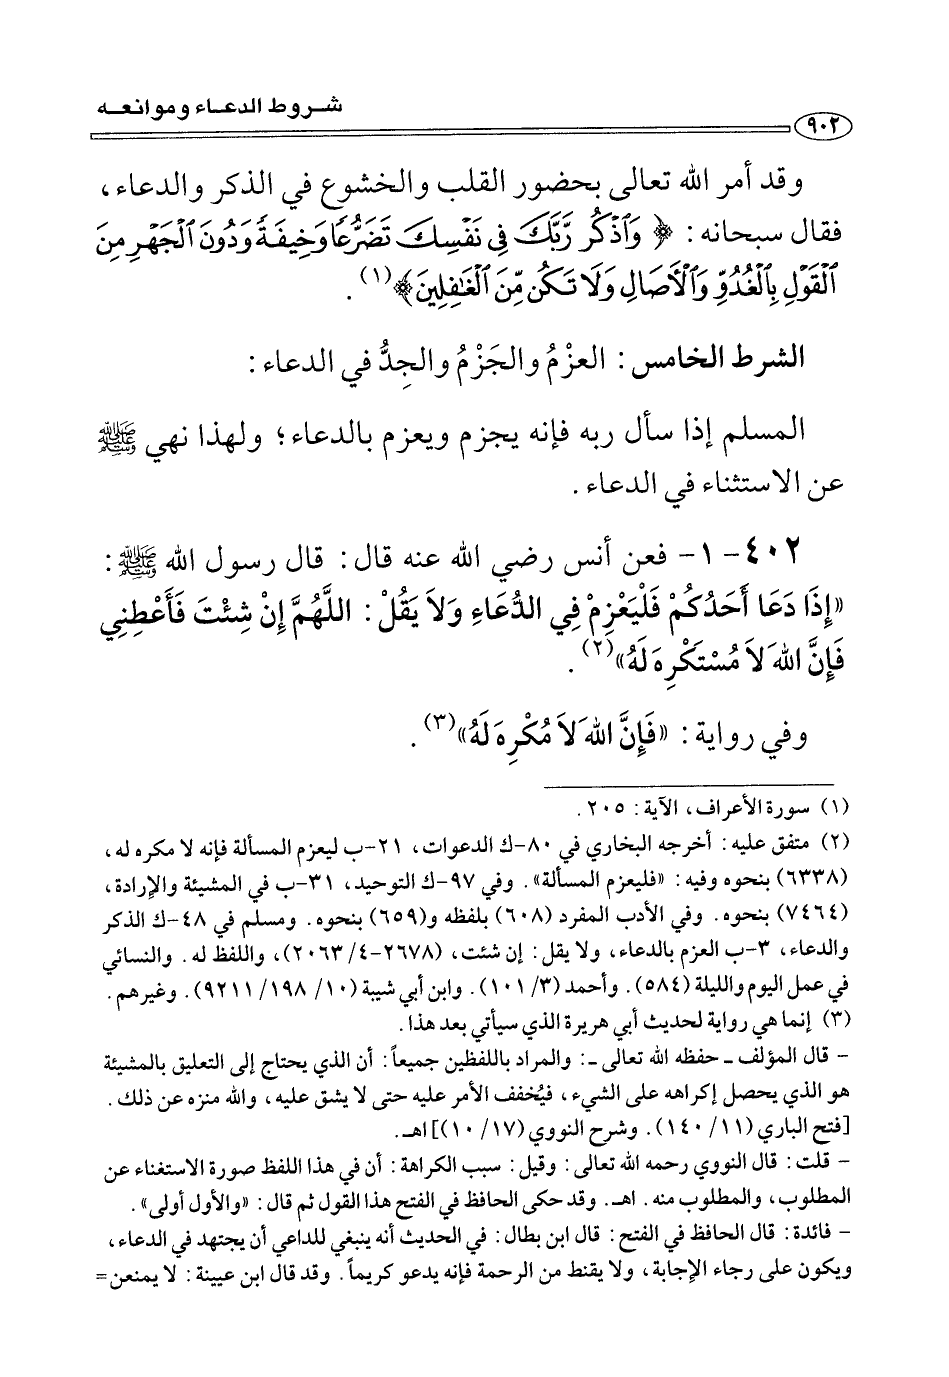 شروط الدعاء وموانعه
٩٠٢
وقد أمر الله تعالى بحضور القلب والخشوع في الذكر والدعاء،
فقال سبحانه: ﴿وَٱذۡكُر رَّبَّكَ فِي نَفۡسِكَ تَضَرُّعٗا وَخِيفَةٗ وَدُونَ ٱلۡجَهۡرِ مِنَ
ٱلۡقَوۡلِ بِٱلۡغُدُوِّ وَٱلۡأٓصَالِ وَلَا تَكُن مِّنَ ٱلۡغَٰفِلِينَ﴾(١).
الشرط الخامس: العزْمُ والجَزْمُ والجِدُّ في الدعاء:
المسلم إذا سأل ربه فإنه يجزم ويعزم بالدعاء؛ ولهذا نهي ﷺ
عن الاستثناء في الدعاء.
٤٠٢-١- فعن أنس رضي الله عنه قال: قال رسول الله ﷺ:
«إِذَا دَعَا أَحَدُكُمْ فَلْيَعْزِمْ فِي الدُّعَاءِ وَلاَ يَقُلْ: اللَّهُمَّ إِنْ شِئْتَ فَأَعْطِنِي
فَإِنَّ اللهَ لاَ مُسْتَكْرِهَ لَهُ»(٢).
وفي رواية: «فَإِنَّ اللهَ لاَ مُكْرِهَ لَهُ»(٣).
(١) سورة الأعراف، الآية: ٢٠٥.
(٢) متفق عليه: أخرجه البخاري في ٨٠-ك الدعوات، ٢١-ب ليعزم المسألة فإنه لا مكره له،
(٦٣٣٨) بنحوه وفيه: «فليعزم المسألة». وفي ٩٧-ك التوحيد، ٣١-ب في المشيئة والإرادة،
(٧٤٦٤) بنحوه. وفي الأدب المفرد (٦٠٨) بلفظه و(٦٥٩) بنحوه. ومسلم في ٤٨-ك الذكر
والدعاء، ٣-ب العزم بالدعاء، ولا يقل: إن شئت، (٢٦٧٨-٤/ ٢٠٦٣)، واللفظ له. والنسائي
في عمل اليوم والليلة (٥٨٤). وأحمد (٣/ ١٠١). وابن أبي شيبة (١٠/ ١٩٨/ ٩٢١١). وغيرهم.
(٣) إنما هي رواية لحديث أبي هريرة الذي سيأتي بعد هذا.
- قال المؤلف - حفظه الله تعالى -: والمراد باللفظين جميعاً: أن الذي يحتاج إلى التعليق بالمشيئة
هو الذي يحصل إكراهه على الشيء، فيُخفف الأمر عليه حتى لا يشق عليه، والله منزه عن ذلك.
[فتح الباري (١١/ ١٤٠). وشرح النووي (١٧/ ١٠)] اهـ.
- قلت: قال النووي رحمه الله تعالى: وقيل: سبب الكراهة: أن في هذا اللفظ صورة الاستغناء عن
المطلوب، والمطلوب منه. اهـ. وقد حكى الحافظ في الفتح هذا القول ثم قال: «والأول أولى».
- فائدة: قال الحافظ في الفتح: قال ابن بطال: في الحديث أنه ينبغي للداعي أن يجتهد في الدعاء،
ويكون على رجاء الإجابة، ولا يقنط من الرحمة فإنه يدعو كريماً. وقد قال ابن عيينة: لا يمنعن=